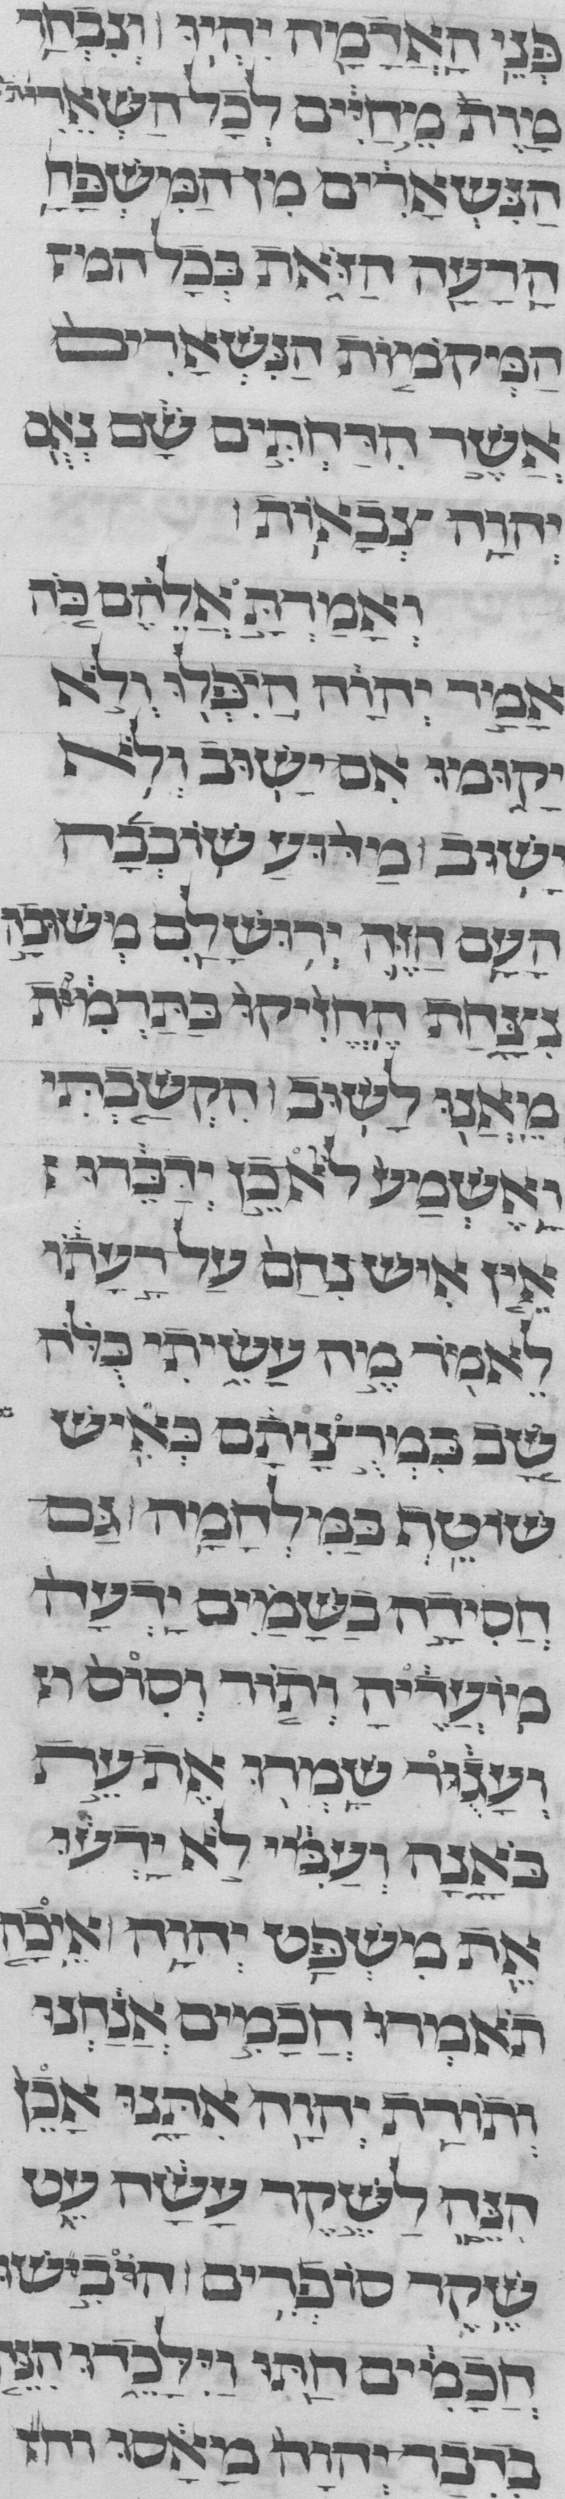 פְּנֵ֥י הָאֲדָמָ֖ה יִהְיֽוּ׃ וְנִבְחַ֥ר
מָ֙וֶת֙ מֵֽחַיִּ֔ים לְכֹ֗ל הַשְּׁאֵרִית֙
הַנִּשְׁאָרִ֔ים מִן הַמִּשְׁפָּחָ֥
הָֽרָעָ֖ה הַזֹּ֑את בְּכָל המ
הַמְּקֹמ֤וֹת הַנִּשְׁאָרִים֙
אֲשֶׁ֣ר הִדַּחְתִּ֣ים שָׁ֔ם נְאֻ֖ם
יְהוָ֥ה צְבָאֽוֹת׃
וְאָמַרְתָּ֣ אֲלֵהֶ֗ם כֹּ֚ה
אָמַ֣ר יְהוָ֔ה הֲיִפְּל֖וּ וְלֹ֣א
יָק֑וּמוּ אִם יָשׁ֖וּב וְלֹ֥א
יָשֽׁוּב׃ מַדּ֨וּעַ שׁוֹבְבָ֜ה
הָעָ֥ם הַזֶּ֛ה יְרוּשָׁלִַ֖ם מְשֻׁבָ֣ה
נִצַּ֑חַת הֶחֱזִ֙יקוּ֙ בַּתַּרְמִ֔ית
מֵאֲנ֖וּ לָשֽׁוּב׃ הִקְשַׁ֤בְתִּי
וָֽאֶשְׁמָע֙ לֹא כֵ֣ן יְדַבֵּ֔רוּ
אֵ֣ין אִ֗ישׁ נִחָם֙ עַל רָ֣עָת֔וֹ
לֵאמֹ֖ר מֶ֣ה עָשִׂ֑יתִי כֻּלֹּ֗ה
שָׁ֚ב בִּמְרֻ֣צָותָ֔ם כְּא֥יִשׁ
שׁוֹטֵ֖ף בַּמִּלְחָמָֽה׃ גַּם
חֲסִידָ֣ה בַשָּׁמַ֗יִם יָֽדְעָה֙
מֽוֹעֲדֶ֔יהָ וְתֹ֤ר וְסִוס֙
וְעָג֔וּר שָׁמְר֖וּ אֶת עֵ֣ת
בֹּאָ֑נָה וְעַמִּ֕י לֹ֣א יָֽדְע֔וּ
אֵ֖ת מִשְׁפַּ֥ט יְהוָֽה׃ אֵיכָ֤ה
תֹֽאמְרוּ֙ חֲכָמִ֣ים אֲנַ֔חְנוּ
וְתוֹרַ֥ת יְהוָ֖ה אִתָּ֑נוּ אָכֵן֙
הִנֵּ֣ה לַשֶּׁ֣קֶר עָשָׂ֔ה עֵ֖ט
שֶׁ֥קֶר סֹפְרִֽים׃ הֹבִ֣ישׁוּ
חֲכָמִ֔ים חַ֖תּוּ וַיִּלָּכֵ֑דוּ הִנֵּ֤ה
בִדְבַר יְהוָה֙ מָאָ֔סוּ וח